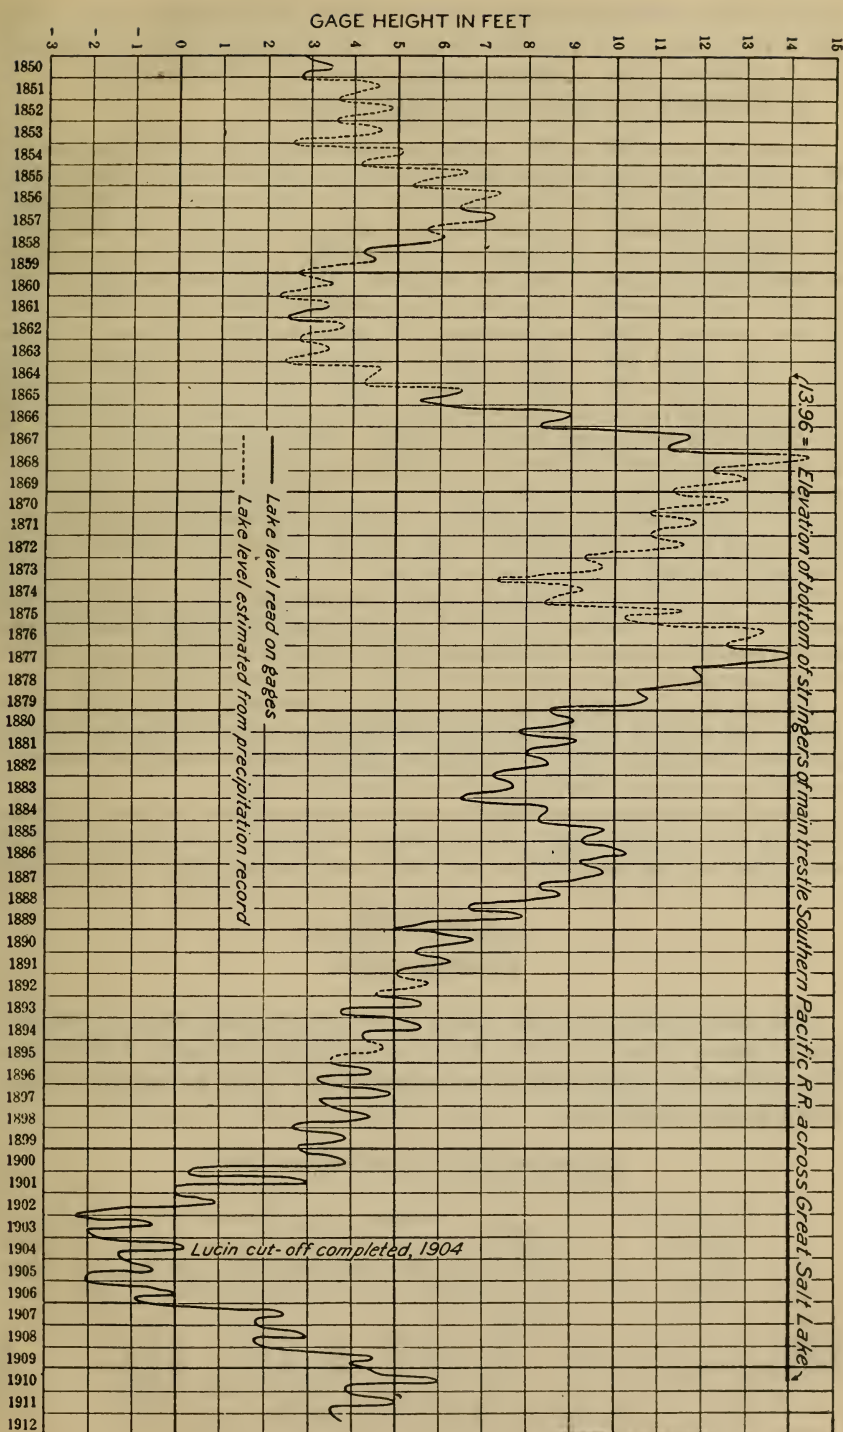 GAGE HEIGHT IN FEET
-3 -2 -1 0 1 2 3 4 5 6 7 8 9 10 11 12 13 14 15
1850
1851
1852
1853
1854
1855
1856
1857
1858
1859
1860
1861
1862
1863
1864
1865
1866
1867
1868
1869
1870
1871
1872
1873
1874
1875
1876
1877
1878
1879
1880
1881
1882
1883
1884
1885
1886
1887
1888
1889
1890
1891
1892
1893
1894
1895
1896
1897
1898
1899
1900
1901
1902
1903
1904
1905
1906
1907
1908
1909
1910
1911
1912
13.96 = Elevation of bottom of stringers of main trestle Southern Pacific R.R. across Great Salt Lake
Lake level read on gages
Lake level estimated from precipitation record
Lucin cut-off completed, 1904